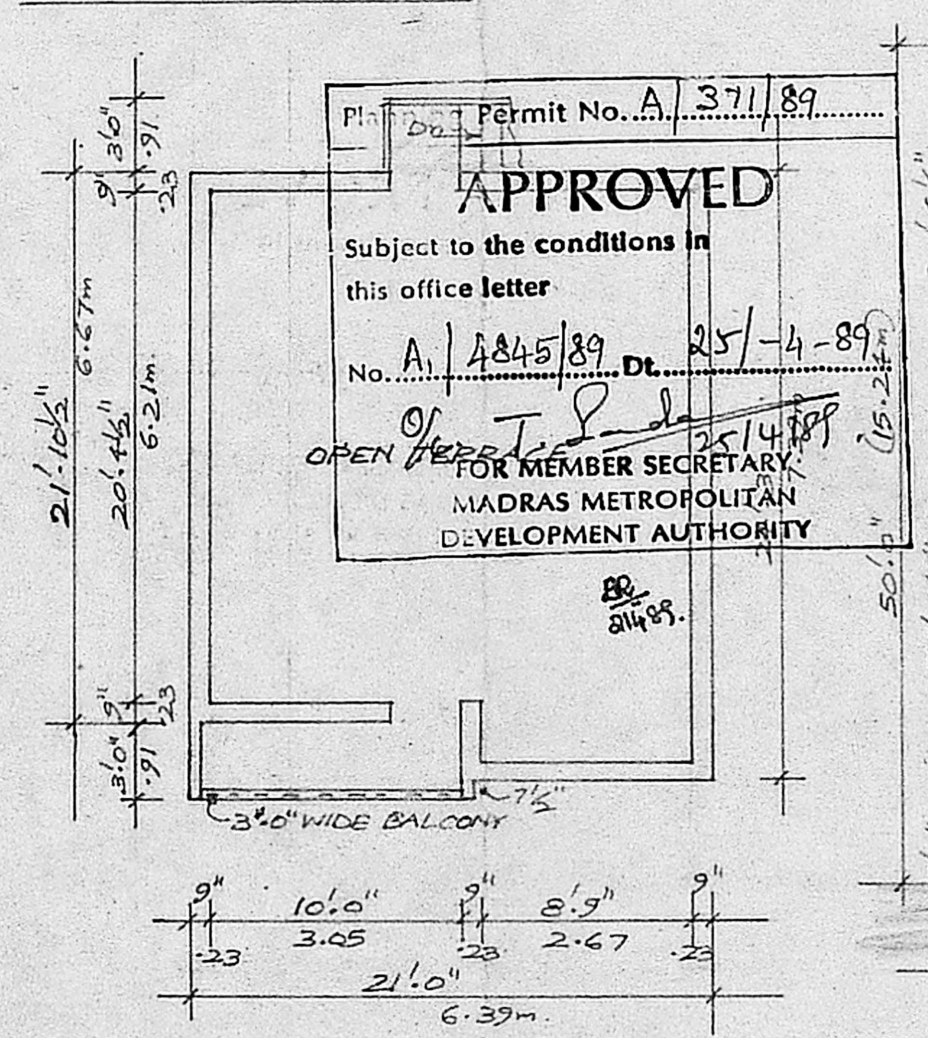 Planning Permit No. A/371/89
Down
APPROVED
Subject to the conditions in
this office letter
No. A1/4845/89 Dt. 25/-4-89
25/4/89
OPEN TERRACE
FOR MEMBER SECRETARY
MADRAS METROPOLITAN
DEVELOPMENT AUTHORITY
3'.0" .91
9" .23
6.67m
21'.10½"
20'.4½"
6.21m.
9" .23
3'.0" .91
50'.0" (15.24m)
7½"
3'.0" WIDE BALCONY
9" 10'.0" 9" 8'.9" 9"
.23 3.05 .23 2.67 .23
21'.0"
6.39m.